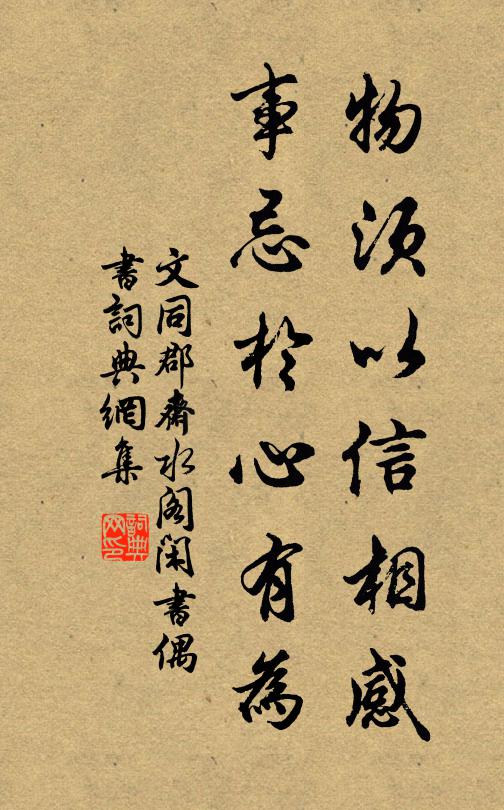 物須以信相感
事忌於心有為
文同郡齋水閣閑書偶
書詞典網集
詞典網印